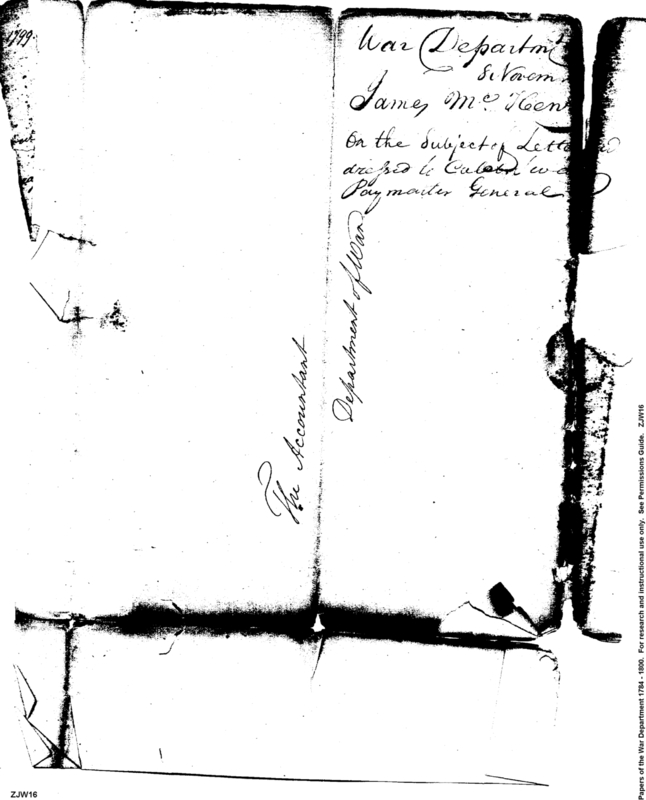 1799
War Departm
8 Novem
James McHen
On the Subject of Lette
dressed to Caleb
Paymaster General
The Accountant
Department of War
Papers of the War Department 1784 - 1800. For research and instructional use only. See Permissions Guide. ZJW16
ZJW16